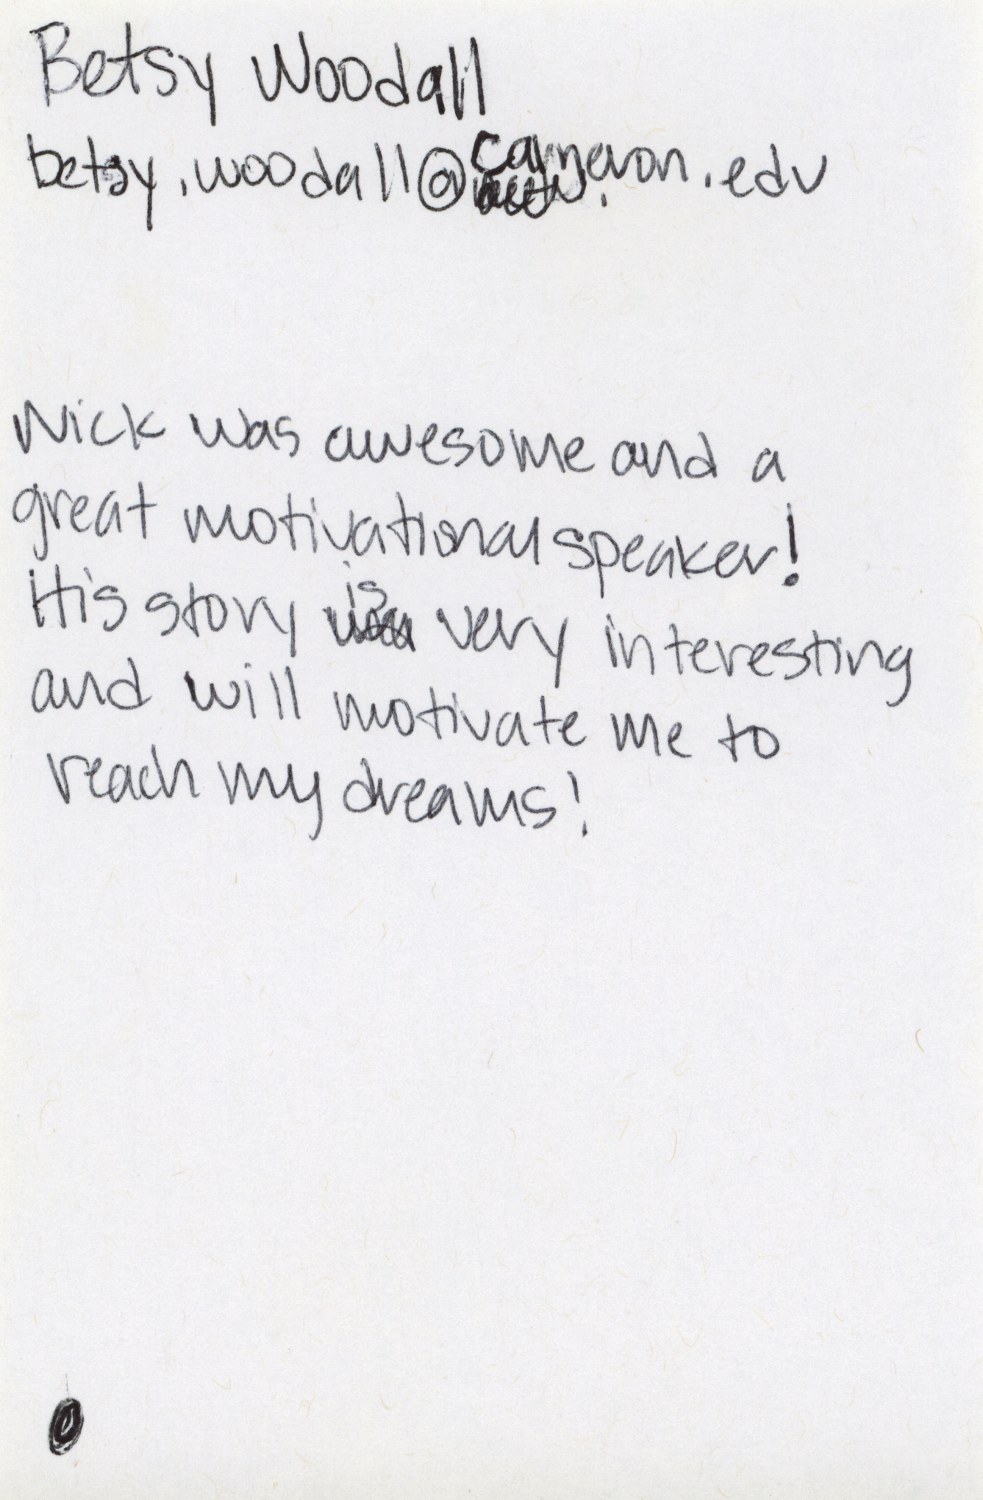 Betsy Woodall
betsy.woodall@cameron.edu
Nick was awesome and a
great motivational speaker!
His story is very interesting
and will motivate me to
reach my dreams!